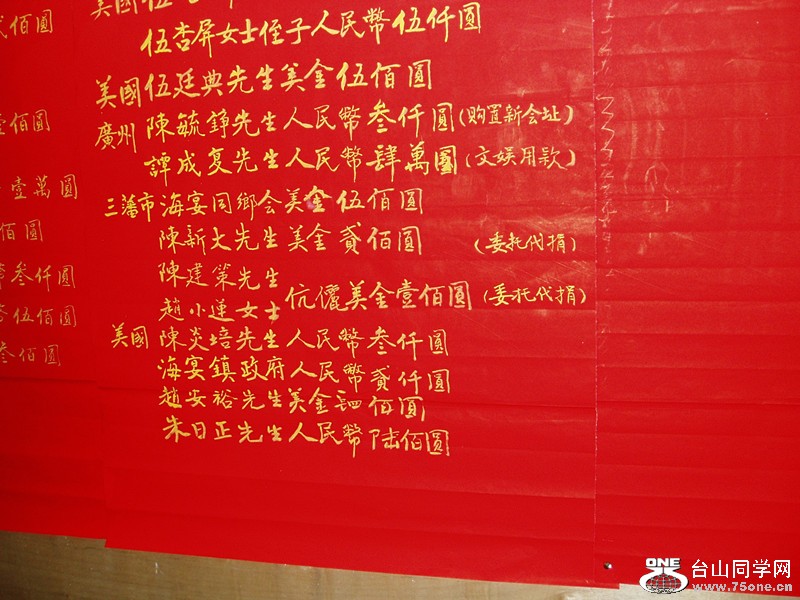 美國伍
伍杏屏女士侄子人民幣伍仟圓
美國伍廷典先生美金伍佰圓
廣州 陳毓錚先生人民幣叁仟圓(购置新会址)
譚成复先生人民幣肆萬圓(文娱用款)
三藩市海宴同鄉会美金伍佰圓
陳新大先生美金貳佰圓 (委托代捐)
陳建策先生
趙小蓮女士 伉儷美金壹佰圓(委托代捐)
美國 陳炎培先生人民幣叁仟圓
海宴鎮政府人民幣貳仟圓
趙安裕先生美金 佰圓
朱日正先生人民幣陆佰圓
佰圓
壹佰圓
壹萬圓
佰圓
幣叁仟圓
伍佰圓
叁佰圓
ONE
台山同学网
www.75one.cn